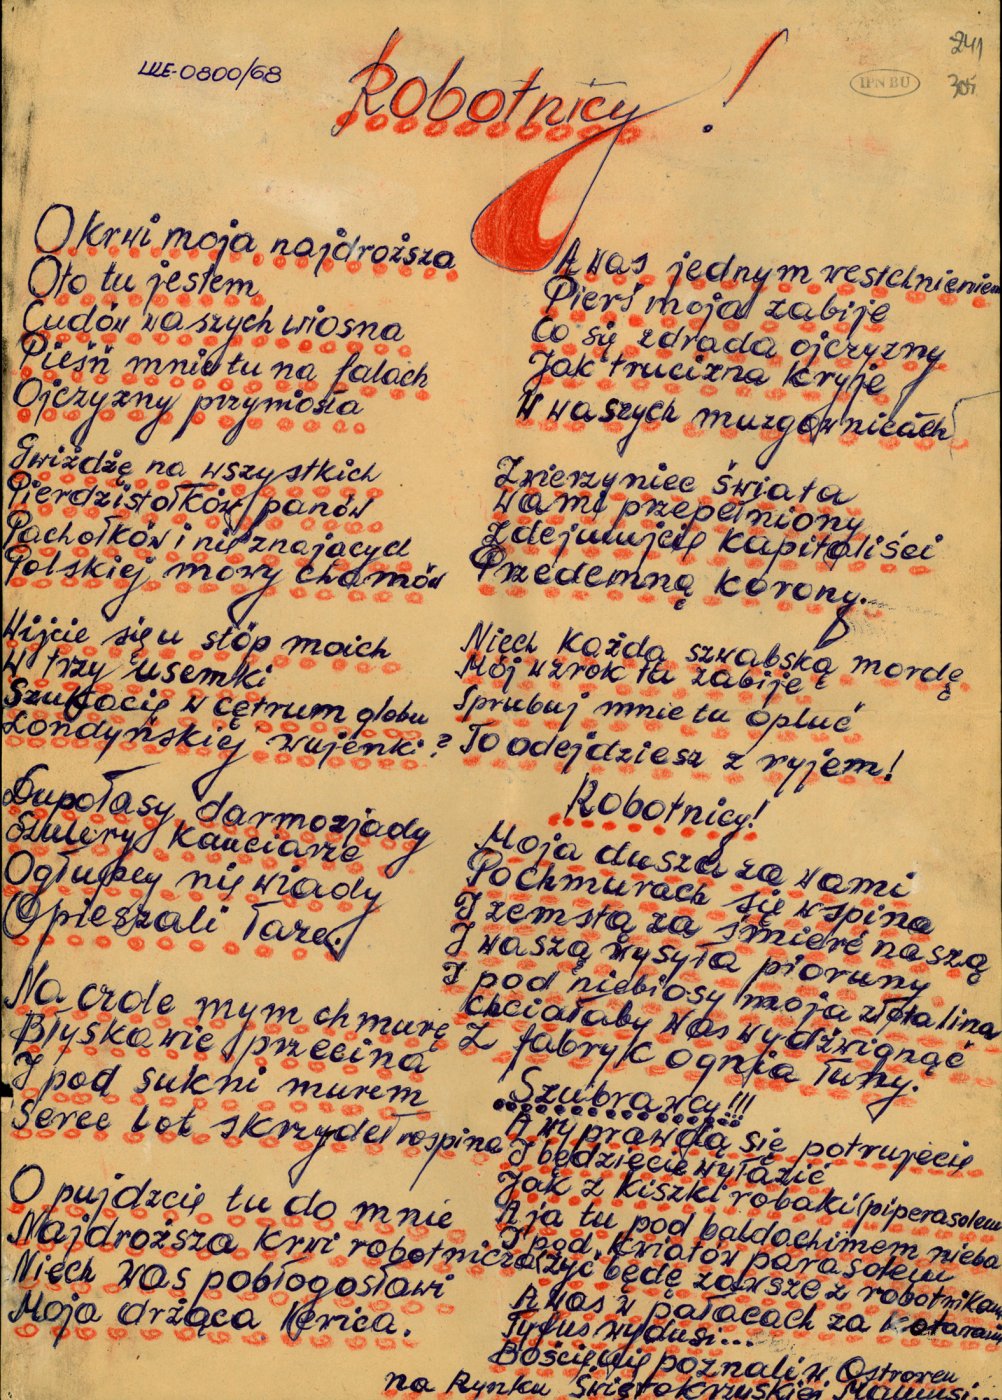 LLE-0800/68
241
IPN BU
305
Robotnicy!
O krwi moja najdroższa
Oto tu jestem
Cudów waszych wiosna
Pieśń mnie tu na falach
Ojczyzny przyniosła
Gwiżdżę na wszystkich
Pierdzistołków panów
Pachołków i nie znajacycl
Polskiej mowy chamów
Wijcie się u stóp moich
W trzy usemki
Szukacie w cętrum globu
Londyńskiej wujenki?
Dupołasy darmozjady
Szulery kanciarze
Ogłupcy nie wiady
Opieszali łaze.
Na czole mym chmurę
Błyskawic przecina
I pod sukni murem
Serce lot skrzydeł rospina
O pujdzcie tu do mnie
Najdroższa krwi robotnicza
Niech was pobłogosławi
Moja drżąca kérica.
A was jednym westchnieniem
Pierś moja zabije
Co się zdrada ojczyzny
Jak trucizna kryje
W waszych muzgownicach
Zwierzyniec świata
Wami przepełniony
Zdejmujcie kapitaliści
Przedemną korony.
Niech każdą szwabską mordę
Mój wzrok tu zabije
Sprubuj mnie tu opluć
To odejdziesz z ryjem!
Robotnicy!
Moja dusza za wami
Po chmurach się wspina
I zemstą za śmierć naszą
I waszą wysyła pioruny
I pod niebiosy moja złota lina
Chciałaby was wydźwignąć
Z fabryk ognia łuny.
Szubrawcy!!!
A wy prawdą się potrujecie
I będziecie wyłazić
Jak z kiszki robaki (piperasolem
A ja tu pod baldachimem nieba
I pod kwiatów parasolem
Żyć będę zawsze z robotnikami
A was w pałacach za kotarami
Tyfus wydusi...
Bościęcie poznali w Ostrowcu
na Rynku Świętokrzuskiej